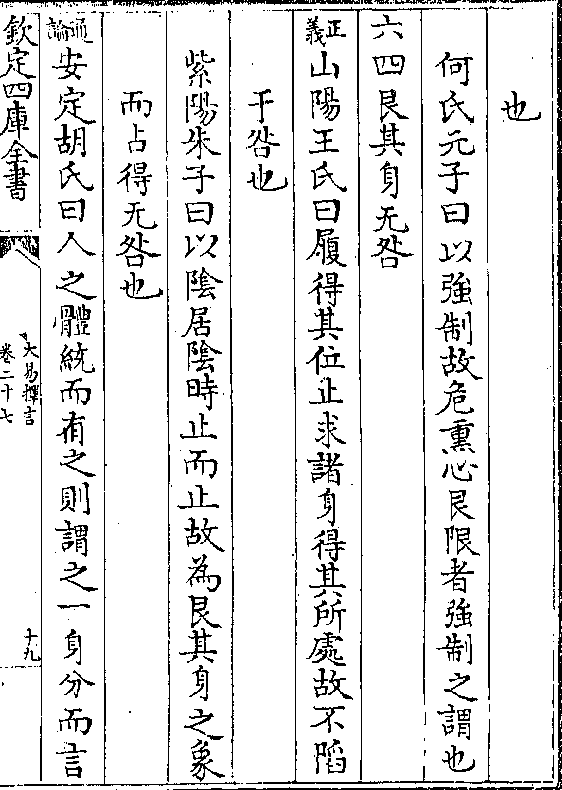 也
何氏元子曰以強制故危熏心艮限者強制之謂也
六四艮其身无咎
正義山陽王氏曰履得其位止求諸身得其所處故不陷
于咎也
紫陽朱子曰以陰居陰時止而止故為艮其身之象
而占得无咎也
通論安定胡氏曰人之體統而有之則謂之一身分而言
欽定四庫全書
大易擇言
卷二十七
十九